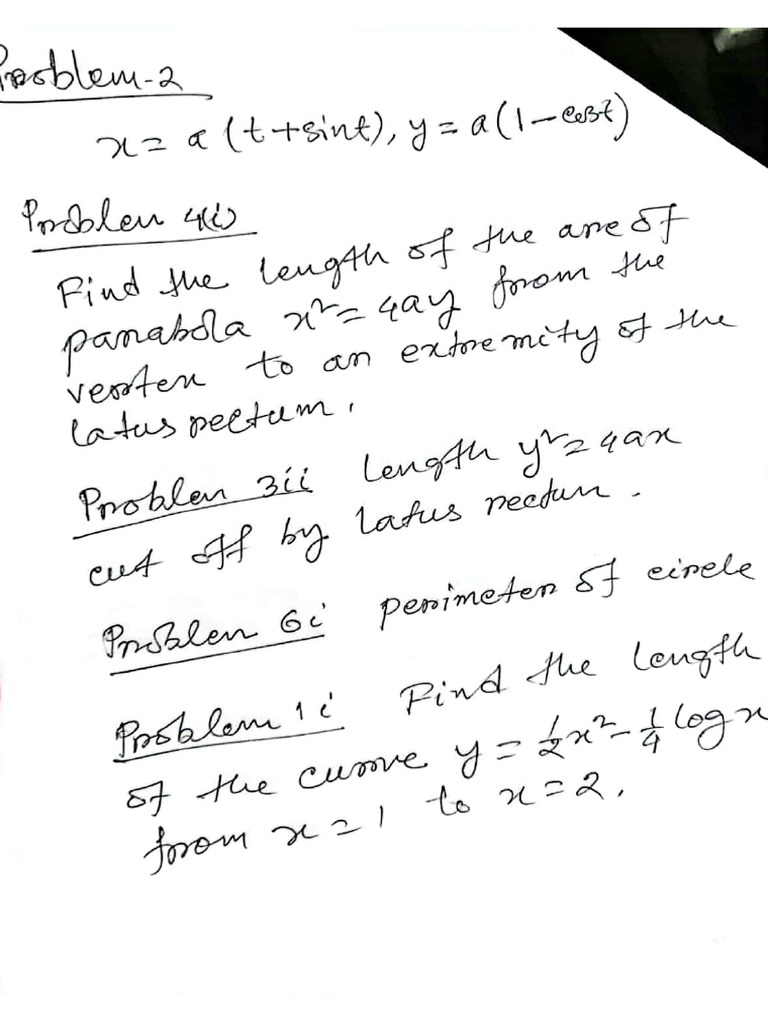 Problem-2
x = a (t+sint), y = a(1-cost)
Problem 4(i)
Find the length of the arc of
parabola x² = 4ay from the
vertex to an extremity of the
latus rectum.
Problem 3ii Length y² = 4ax
cut off by latus rectum.
Problem 6i perimeter of circle
Problem 1i Find the length
of the curve y = 1/2 x² - 1/4 log x
from x = 1 to x = 2.